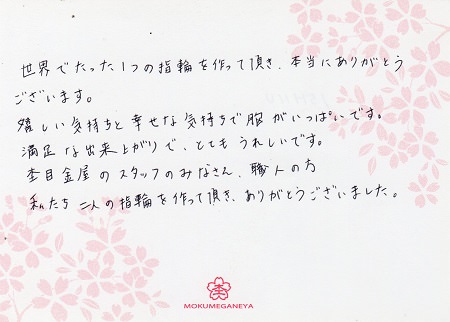 世界でたった1つの指輪を作って頂き、本当にありがとう
ございます。
嬉しい気持ちと幸せな気持ちで胸がいっぱいです。
満足な出来上がりで、とてもうれしいです。
杢目金屋のスタッフのみなさん、職人の方
私たち二人の指輪を作って頂き、ありがとうございました。
MOKUMEGANEYA